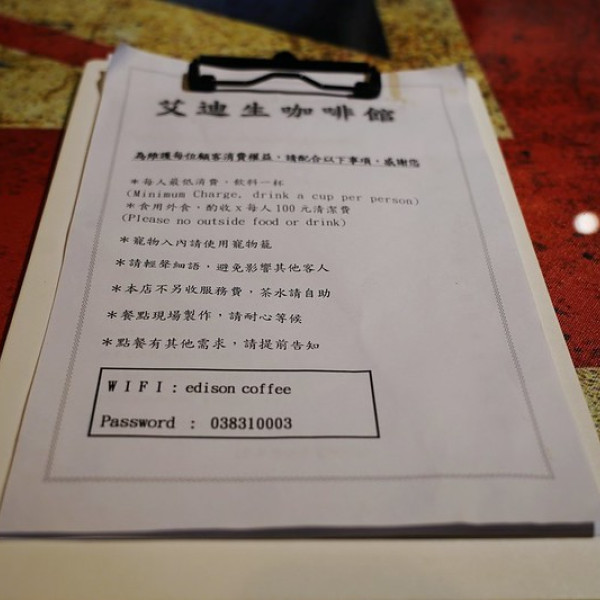 艾迪生咖啡館
為維護每位顧客消費權益，請配合以下事項，感謝您
＊每人最低消費，飲料一杯
(Minimum Charge, drink a cup per person)
＊食用外食，酌收 x 每人 100 元清潔費
(Please no outside food or drink)
＊寵物入內請使用寵物籠
＊請輕聲細語，避免影響其他客人
＊本店不另收服務費，茶水請自助
＊餐點現場製作，請耐心等候
＊點餐有其他需求，請提前告知
WIFI：edison coffee
Password ： 038310003